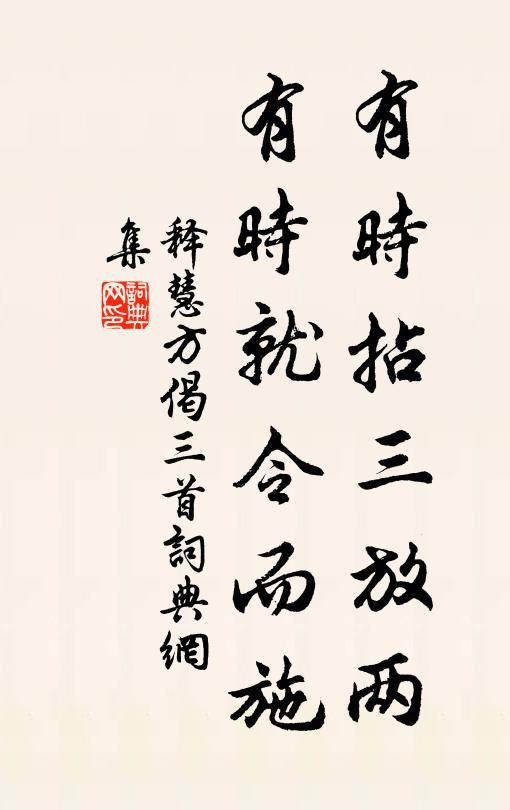 有時拈三放两
有時就令而施
释慧方偈三首詞典網
集
詞典网印